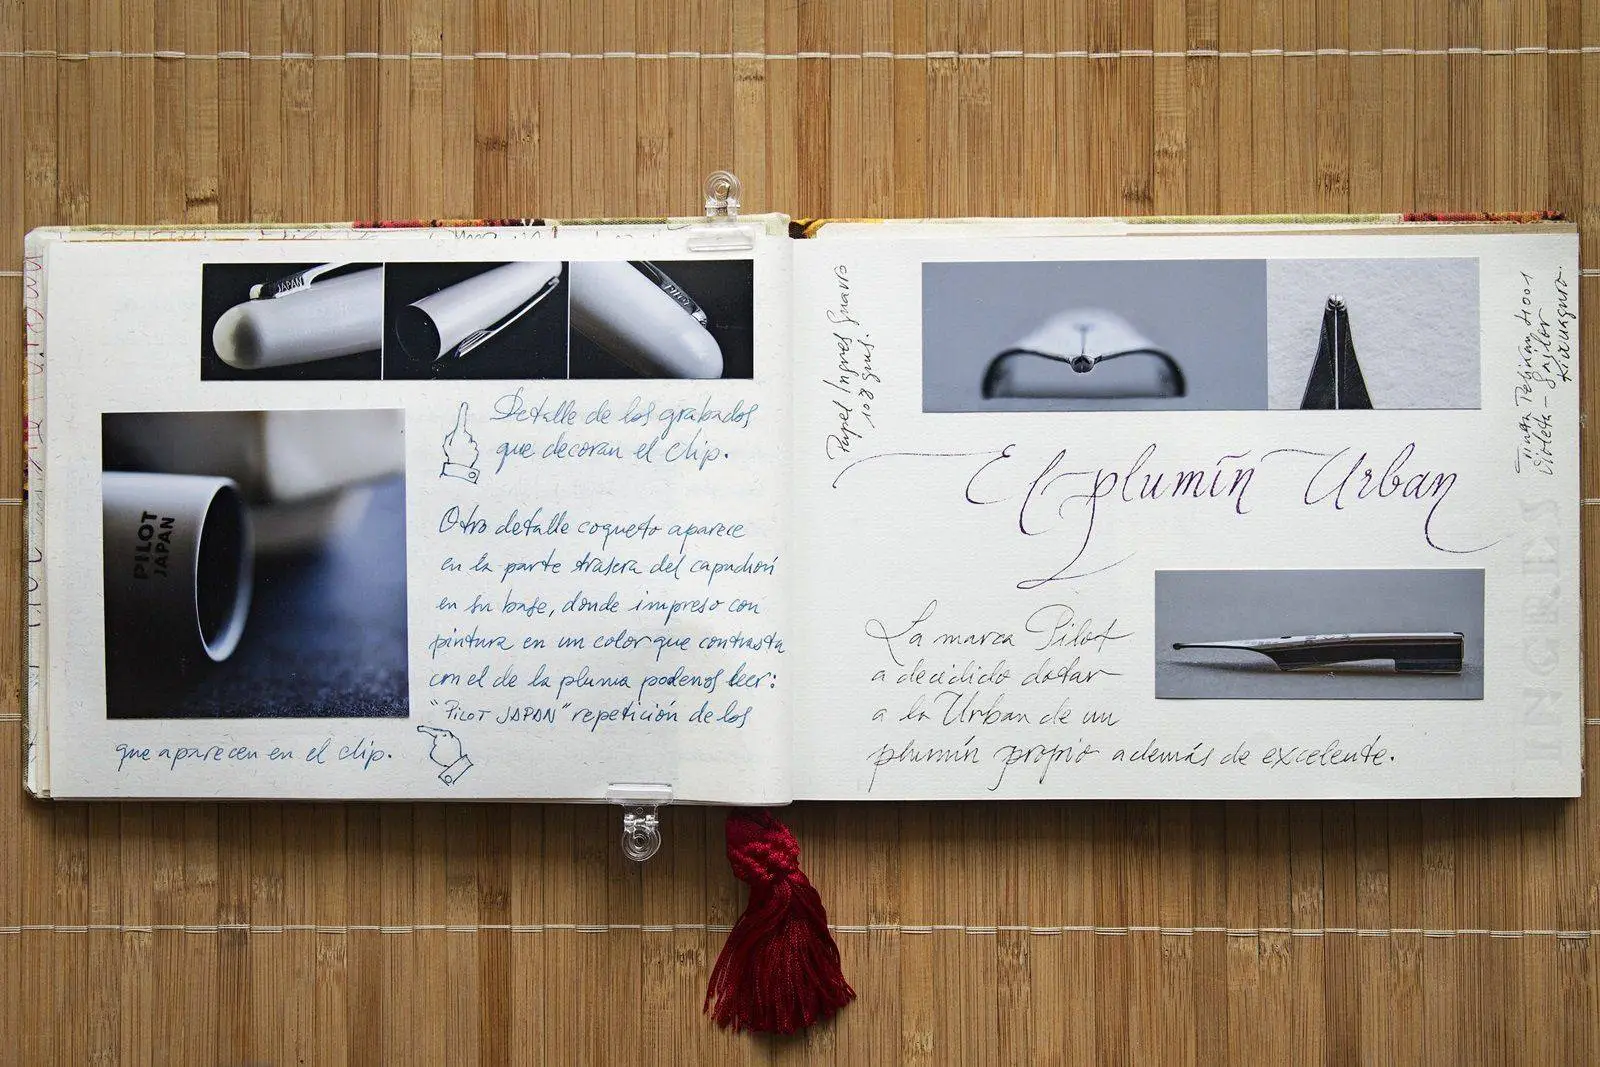 JAPAN
PILOT
Detalle de los grabados
que decoran el clip.
PILOT
JAPAN
Otro detalle coqueto aparece
en la parte trasera del capuchón
en su base, donde impreso con
pintura en un color que contrasta
con el de la pluma podemos leer:
"PILOT JAPAN" repetición de los
que aparecen en el clip.
Papel Ingres Guarro
108 grms.
Tinta Pelikan 4001
Violeta - Sailor
Kiwaguro.
El plumín Urban
La marca Pilot
a decidido dotar
a la Urban de un
plumín propio además de excelente.